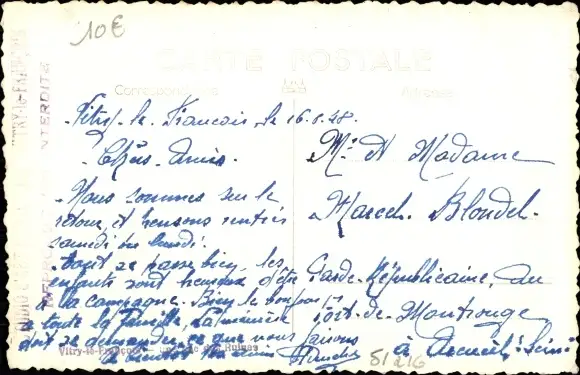 10€
CARTE POSTALE
Correspondance
Adresse
Vitry-le-Francois, le 16.8.48.
Chers Amis.
Nous sommes sur le
retour, et pensons rentrer
samedi ou lundi.
Tout se passe bien, les
enfants sont heureux d'être
à la campagne. Bien le bonjour à
toute la famille, la
doit se demander ce que nous faisons
A bientôt vos amis
Mr et Madame
Marcel Blondel.
Garde-Républicaine, au
Fort-de-Montrouge
à Arcueil. Seine
Vitry-le-François
Ruines
INTERDITE
51/216